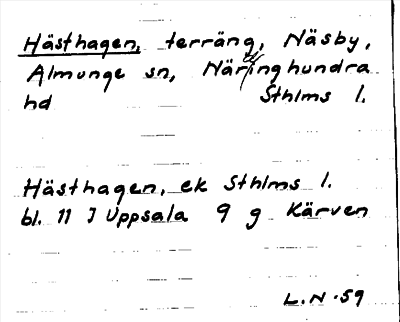 Hästhagen, terräng, Näsby,
Almunge sn, Närdinghundra
hd Sthlms l.
Hästhagen, ek Sthlms l.
bl. 11 I Uppsala 9 g Kärven
L.N. 59